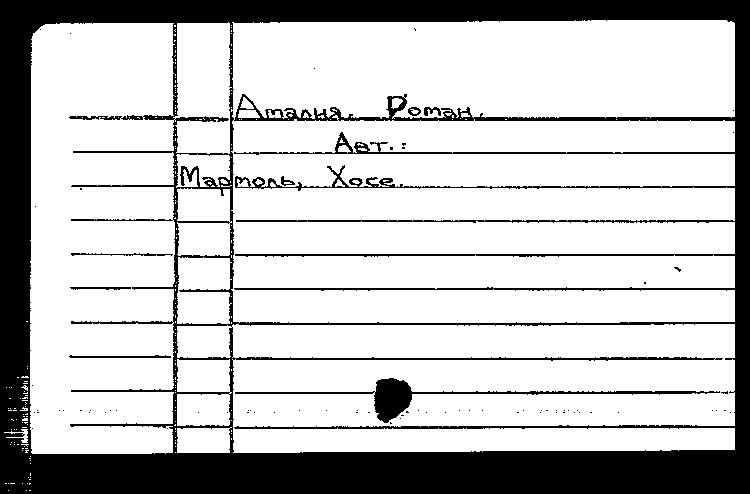 Амалия. Роман.
Авт.:
Мармоль, Хосе.